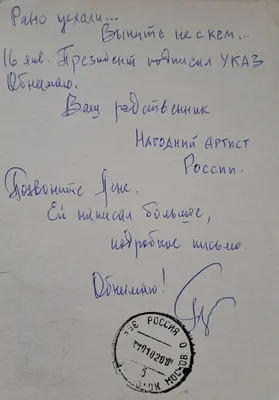 Рано уехали...
Выпить не с кем...
16 янв. Президент подписал УКАЗ
Обнимаю.
Ваш родственник
Народний артист
России.
Позвоните Лене.
Ей написал больше,
подробное письмо.
Обнимаю!
РОССИЯ
МОСКОВ